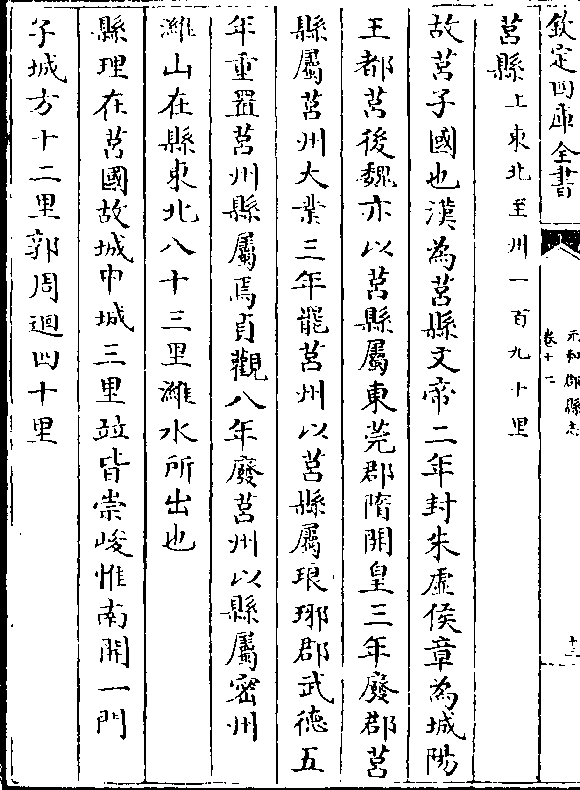 欽定四庫全書
元和郡縣志
卷十二
十三
莒縣上東北至州一百九十里
故莒子國也漢為莒縣文帝二年封朱虛侯章為城陽
王都莒後魏亦以莒縣屬東莞郡隋開皇三年廢郡莒
縣屬莒州大業三年罷莒州以莒縣屬琅琊郡武德五
年重置莒州縣屬焉貞觀八年廢莒州以縣屬密州
濰山在縣東北八十三里濰水所出也
縣理在莒國故城中城三里竝皆崇峻惟南開一門
子城方十二里郭周迴四十里